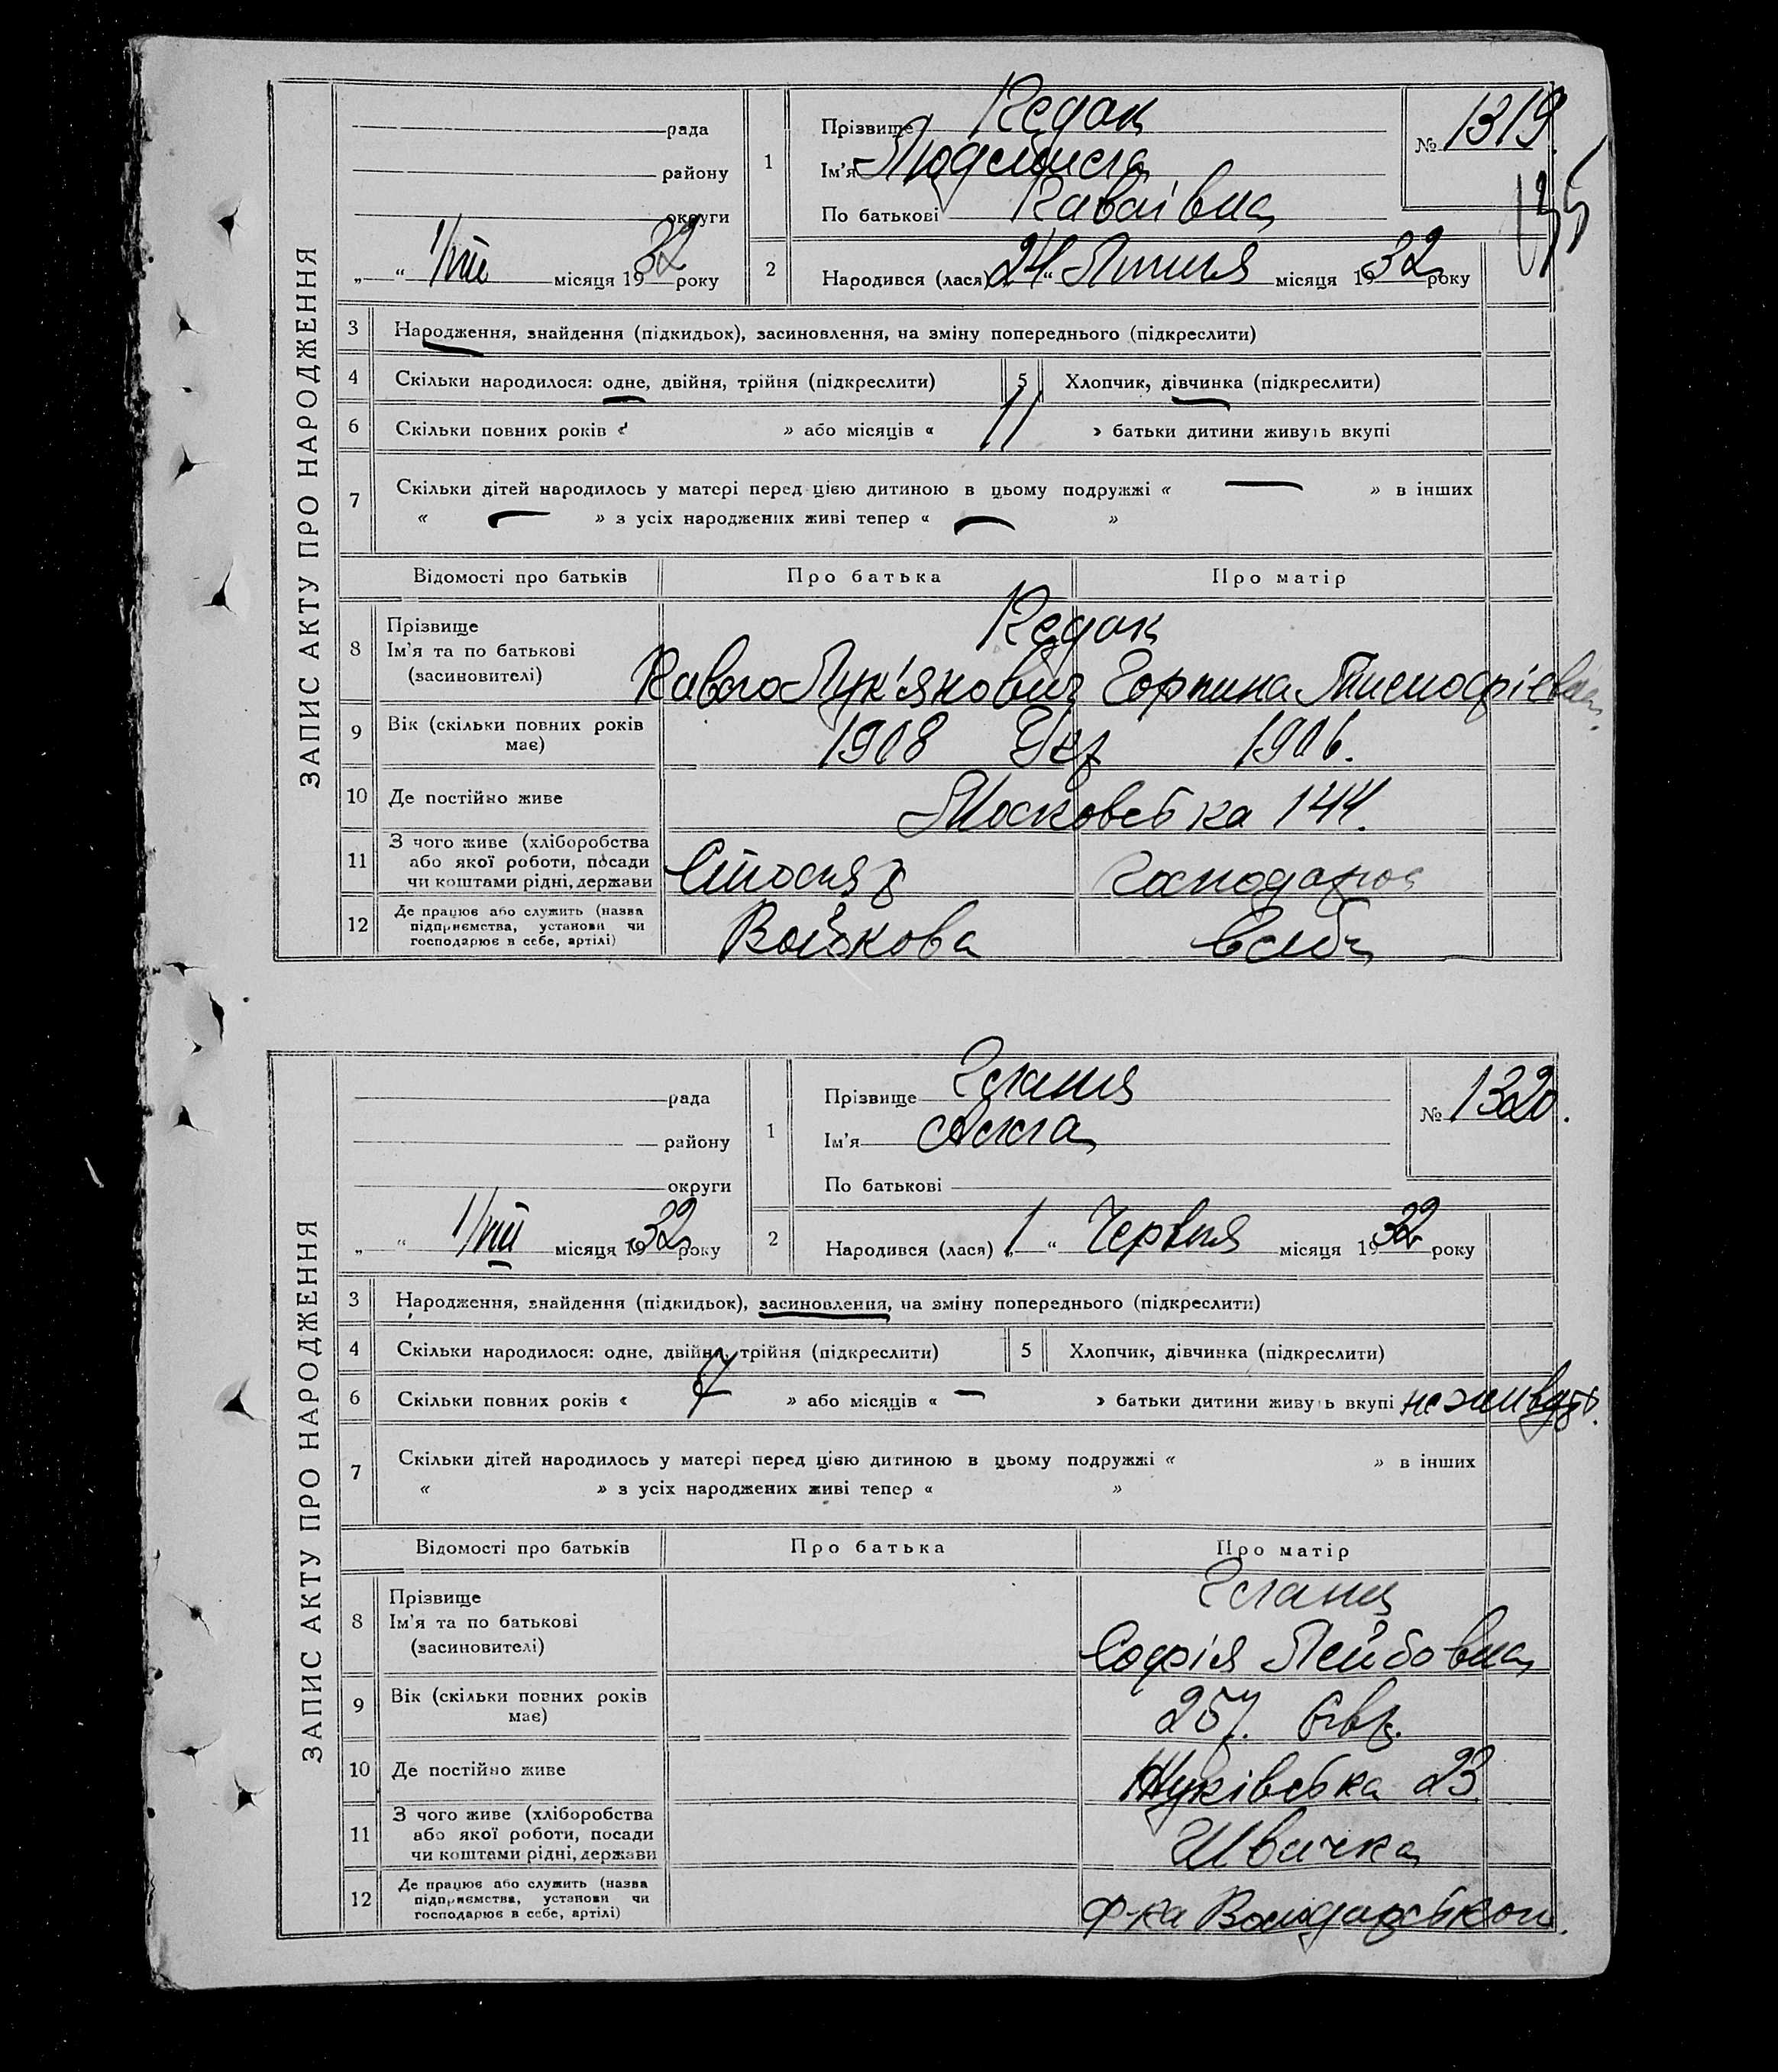 ЗАПИС АКТУ ПРО НАРОДЖЕННЯ
рада
району
округи
„ “ 1/VIII місяця 1932 року
1
Прізвище Кедак
Ім'я Людмила
По батькові
№ 1319.
2
Народився (лася) 24 “ Липня місяця 1932 року
3 Народження, знайдення (підкидьок), засиновлення, на зміну попереднього (підкреслити)
4 Скільки народилося: одне, двійня, трійня (підкреслити)
5 Хлопчик, дівчинка (підкреслити)
6 Скільки повних років « » або місяців « 11 » батьки дитини живуть вкупі
7 Скільки дітей народилось у матері перед цією дитиною в цьому подружжі « — » в інших
« — » з усіх народжених живі тепер « — »
Відомості про батьків
Про батька
Про матір
8 Прізвище
Ім'я та по батькові
(засиновителі)
Кедак
Лук'янович Горпина
9 Вік (скільки повних років
має)
1908 Укр 1906.
10 Де постійно живе
Московська 144.
11 З чого живе (хліборобства
або якої роботи, посади
чи коштами рідні, держави
Столяр
Господарює
12 Де працює або служить (назва
підприємства, установи чи
господарює в себе, артілі)
Войкова
в себе
ЗАПИС АКТУ ПРО НАРОДЖЕННЯ
рада
району
округи
„ “ 1/VIII місяця 1932 року
1
Прізвище
Ім'я Алла
По батькові
№ 1320.
2
Народився (лася) „ 1 “ Червня місяця 1932 року
3 Народження, знайдення (підкидьок), засиновлення, на зміну попереднього (підкреслити)
4 Скільки народилося: одне, двійня, трійня (підкреслити)
5 Хлопчик, дівчинка (підкреслити)
6 Скільки повних років « » або місяців « — » батьки дитини живуть вкупі не живуть.
7 Скільки дітей народилось у матері перед цією дитиною в цьому подружжі « » в інших
« » з усіх народжених живі тепер « »
Відомості про батьків
Про батька
Про матір
8 Прізвище
Ім'я та по батькові
(засиновителі)
Софія Лейбовна
9 Вік (скільки повних років
має)
25 р. Євр.
10 Де постійно живе
Жуківська 23
11 З чого живе (хліборобства
або якої роботи, посади
чи коштами рідні, держави
Швачка
12 Де працює або служить (назва
підприємства, установи чи
господарює в себе, артілі)
ф-ка Володарської.